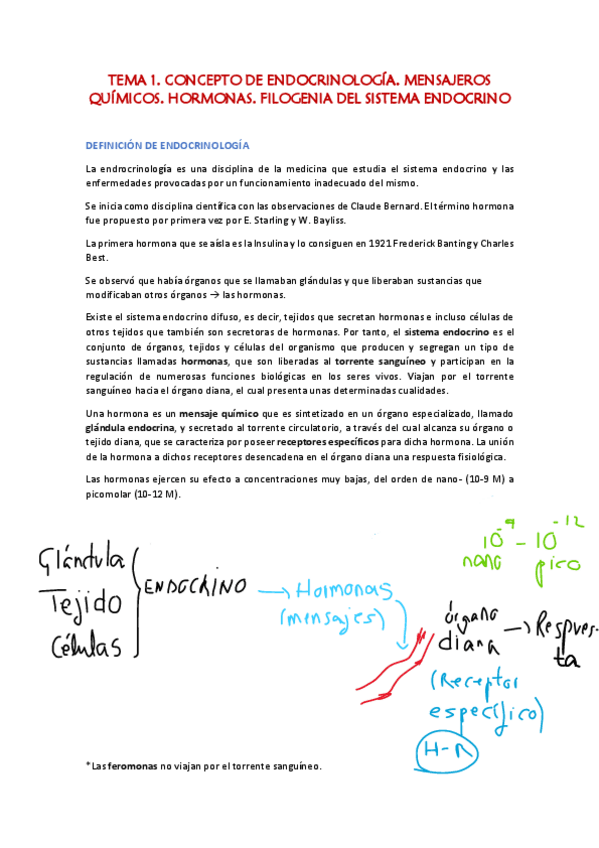 TEMA 1. CONCEPTO DE ENDOCRINOLOGÍA. MENSAJEROS
QUÍMICOS. HORMONAS. FILOGENIA DEL SISTEMA ENDOCRINO
DEFINICIÓN DE ENDOCRINOLOGÍA
La endrocrinología es una disciplina de la medicina que estudia el sistema endocrino y las
enfermedades provocadas por un funcionamiento inadecuado del mismo.
Se inicia como disciplina científica con las observaciones de Claude Bernard. El término hormona
fue propuesto por primera vez por E. Starling y W. Bayliss.
La primera hormona que se aísla es la Insulina y lo consiguen en 1921 Frederick Banting y Charles
Best.
Se observó que había órganos que se llamaban glándulas y que liberaban sustancias que
modificaban otros órganos → las hormonas.
Existe el sistema endocrino difuso, es decir, tejidos que secretan hormonas e incluso células de
otros tejidos que también son secretoras de hormonas. Por tanto, el sistema endocrino es el
conjunto de órganos, tejidos y células del organismo que producen y segregan un tipo de
sustancias llamadas hormonas, que son liberadas al torrente sanguíneo y participan en la
regulación de numerosas funciones biológicas en los seres vivos. Viajan por el torrente
sanguíneo hacia el órgano diana, el cual presenta unas determinadas cualidades.
Una hormona es un mensaje químico que es sintetizado en un órgano especializado, llamado
glándula endocrina, y secretado al torrente circulatorio, a través del cual alcanza su órgano o
tejido diana, que se caracteriza por poseer receptores específicos para dicha hormona. La unión
de la hormona a dichos receptores desencadena en el órgano diana una respuesta fisiológica.
Las hormonas ejercen su efecto a concentraciones muy bajas, del orden de nano- (10-9 M) a
picomolar (10-12 M).
10⁻⁹ - 10⁻¹²
nano pico
Glándula
Tejido
Células
ENDOCRINO → Hormonas
(mensajes)
órgano
diana → Respues-
ta
(Receptor
específico)
H-R
*Las feromonas no viajan por el torrente sanguíneo.